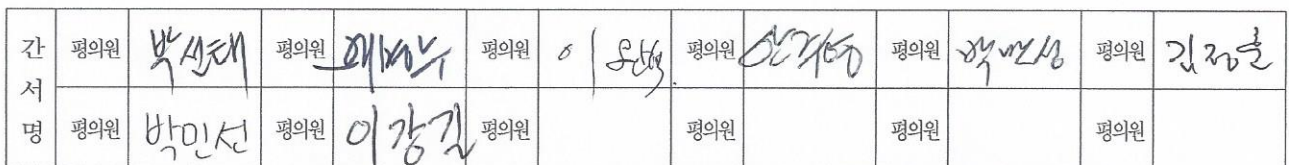 간 서 명 평의원 박선태 평의원 평의원 이 평의원 평의원 평의원 김정훈
평의원 박민선 평의원 이강길 평의원 평의원 평의원 평의원